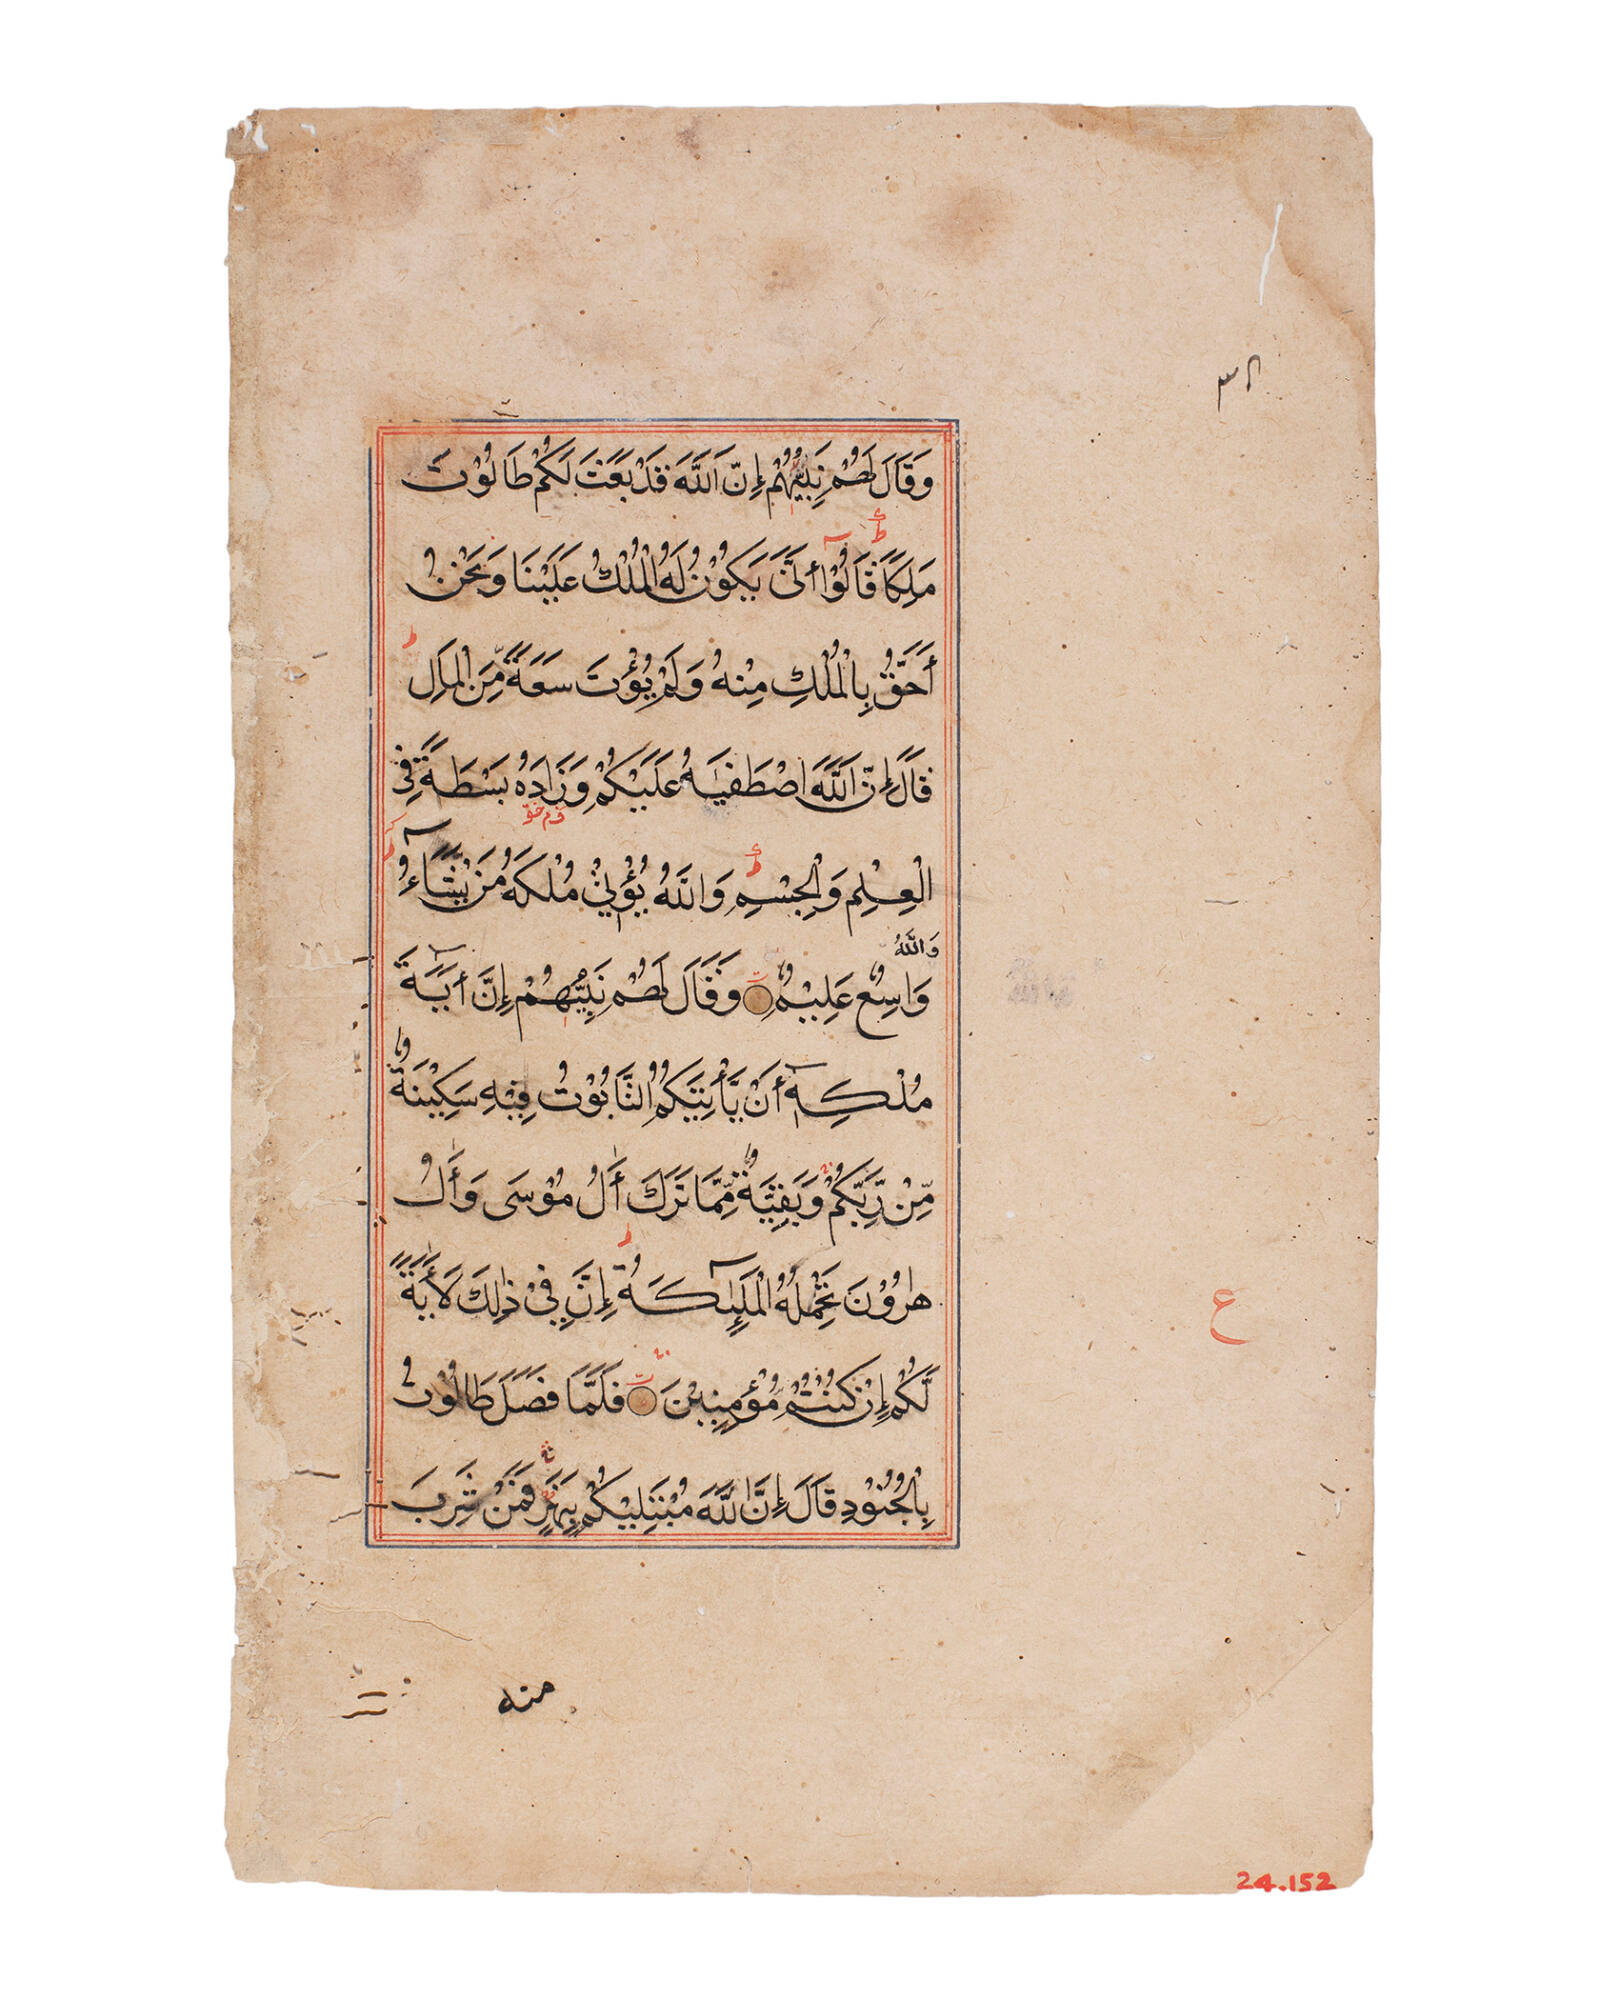 ٣٨
وَقَالَ لَهُمْ نَبِيُّهُمْ إِنَّ اللَّهَ قَدْ بَعَثَ لَكُمْ طَالُوْتَ
مَلِكًا ط قَالُوْا أَنَّى يَكُوْنُ لَهُ الْمُلْكُ عَلَيْنَا وَنَحْنُ
أَحَقُّ بِالْمُلْكِ مِنْهُ وَلَمْ يُؤْتَ سَعَةً مِّنَ الْمَالِ ط
قَالَ إِنَّ اللَّهَ اصْطَفٰيهُ عَلَيْكُمْ وَزَادَهُ بَسْطَةً فِي
الْعِلْمِ وَالْجِسْمِ ط وَاللَّهُ يُؤْتِيْ مُلْكَهُ مَنْ يَّشَآءُ ط
وَاللَّهُ
وَاسِعٌ عَلِيْمٌ وَقَالَ لَهُمْ نَبِيُّهُمْ إِنَّ أٰيَةَ
مُلْكِهٖٓ أَنْ يَّأْتِيَكُمُ التَّابُوْتُ فِيْهِ سَكِيْنَةٌ
مِّنْ رَّبِّكُمْ وَبَقِيَّةٌ مِّمَّا تَرَكَ أٰلُ مُوْسَى وَأٰلُ
هٰرُوْنَ تَحْمِلُهُ الْمَلٰٓئِكَةُ ط إِنَّ فِيْ ذٰلِكَ لَأٰيَةً
ع
لَّكُمْ إِنْ كُنْتُمْ مُّؤْمِنِيْنَ فَلَمَّا فَصَلَ طَالُوْتُ
بِالْجُنُوْدِ قَالَ إِنَّ اللَّهَ مُبْتَلِيْكُمْ بِنَهَرٍ فَمَنْ شَرِبَ
منه
24.152